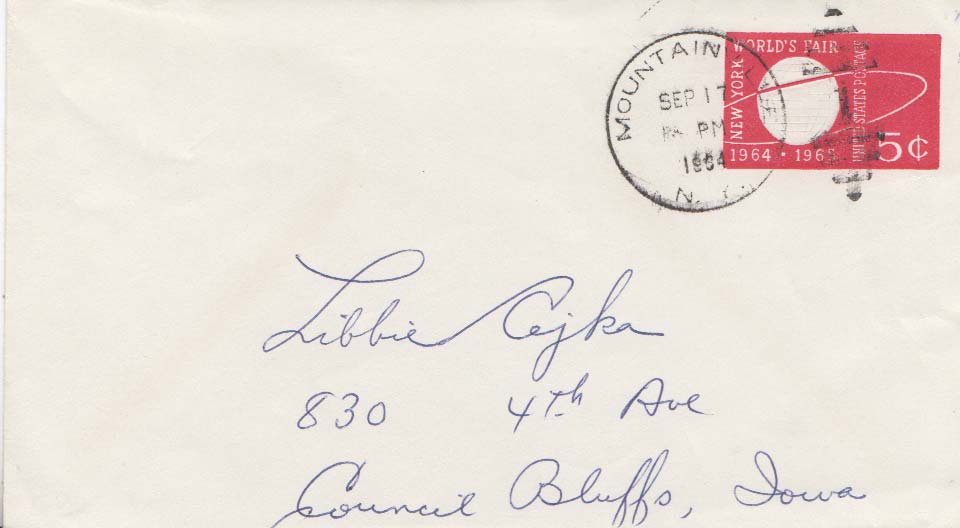 MOUNTAIN
SEP 17
PM
1964
N. Y.
NEW YORK WORLD'S FAIR
1964 • 1965
UNITED STATES POSTAGE
5¢
Libbie Cejka
830 4th Ave
Council Bluffs, Iowa